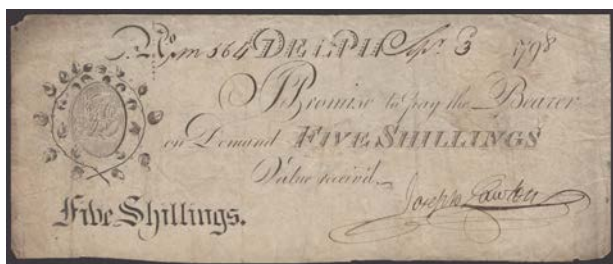 No. 564 DELPH Sepr. 3 1798
I Promise to pay the Bearer
on Demand FIVE SHILLINGS
Value receiv'd
Joseph Lawton
Five Shillings.